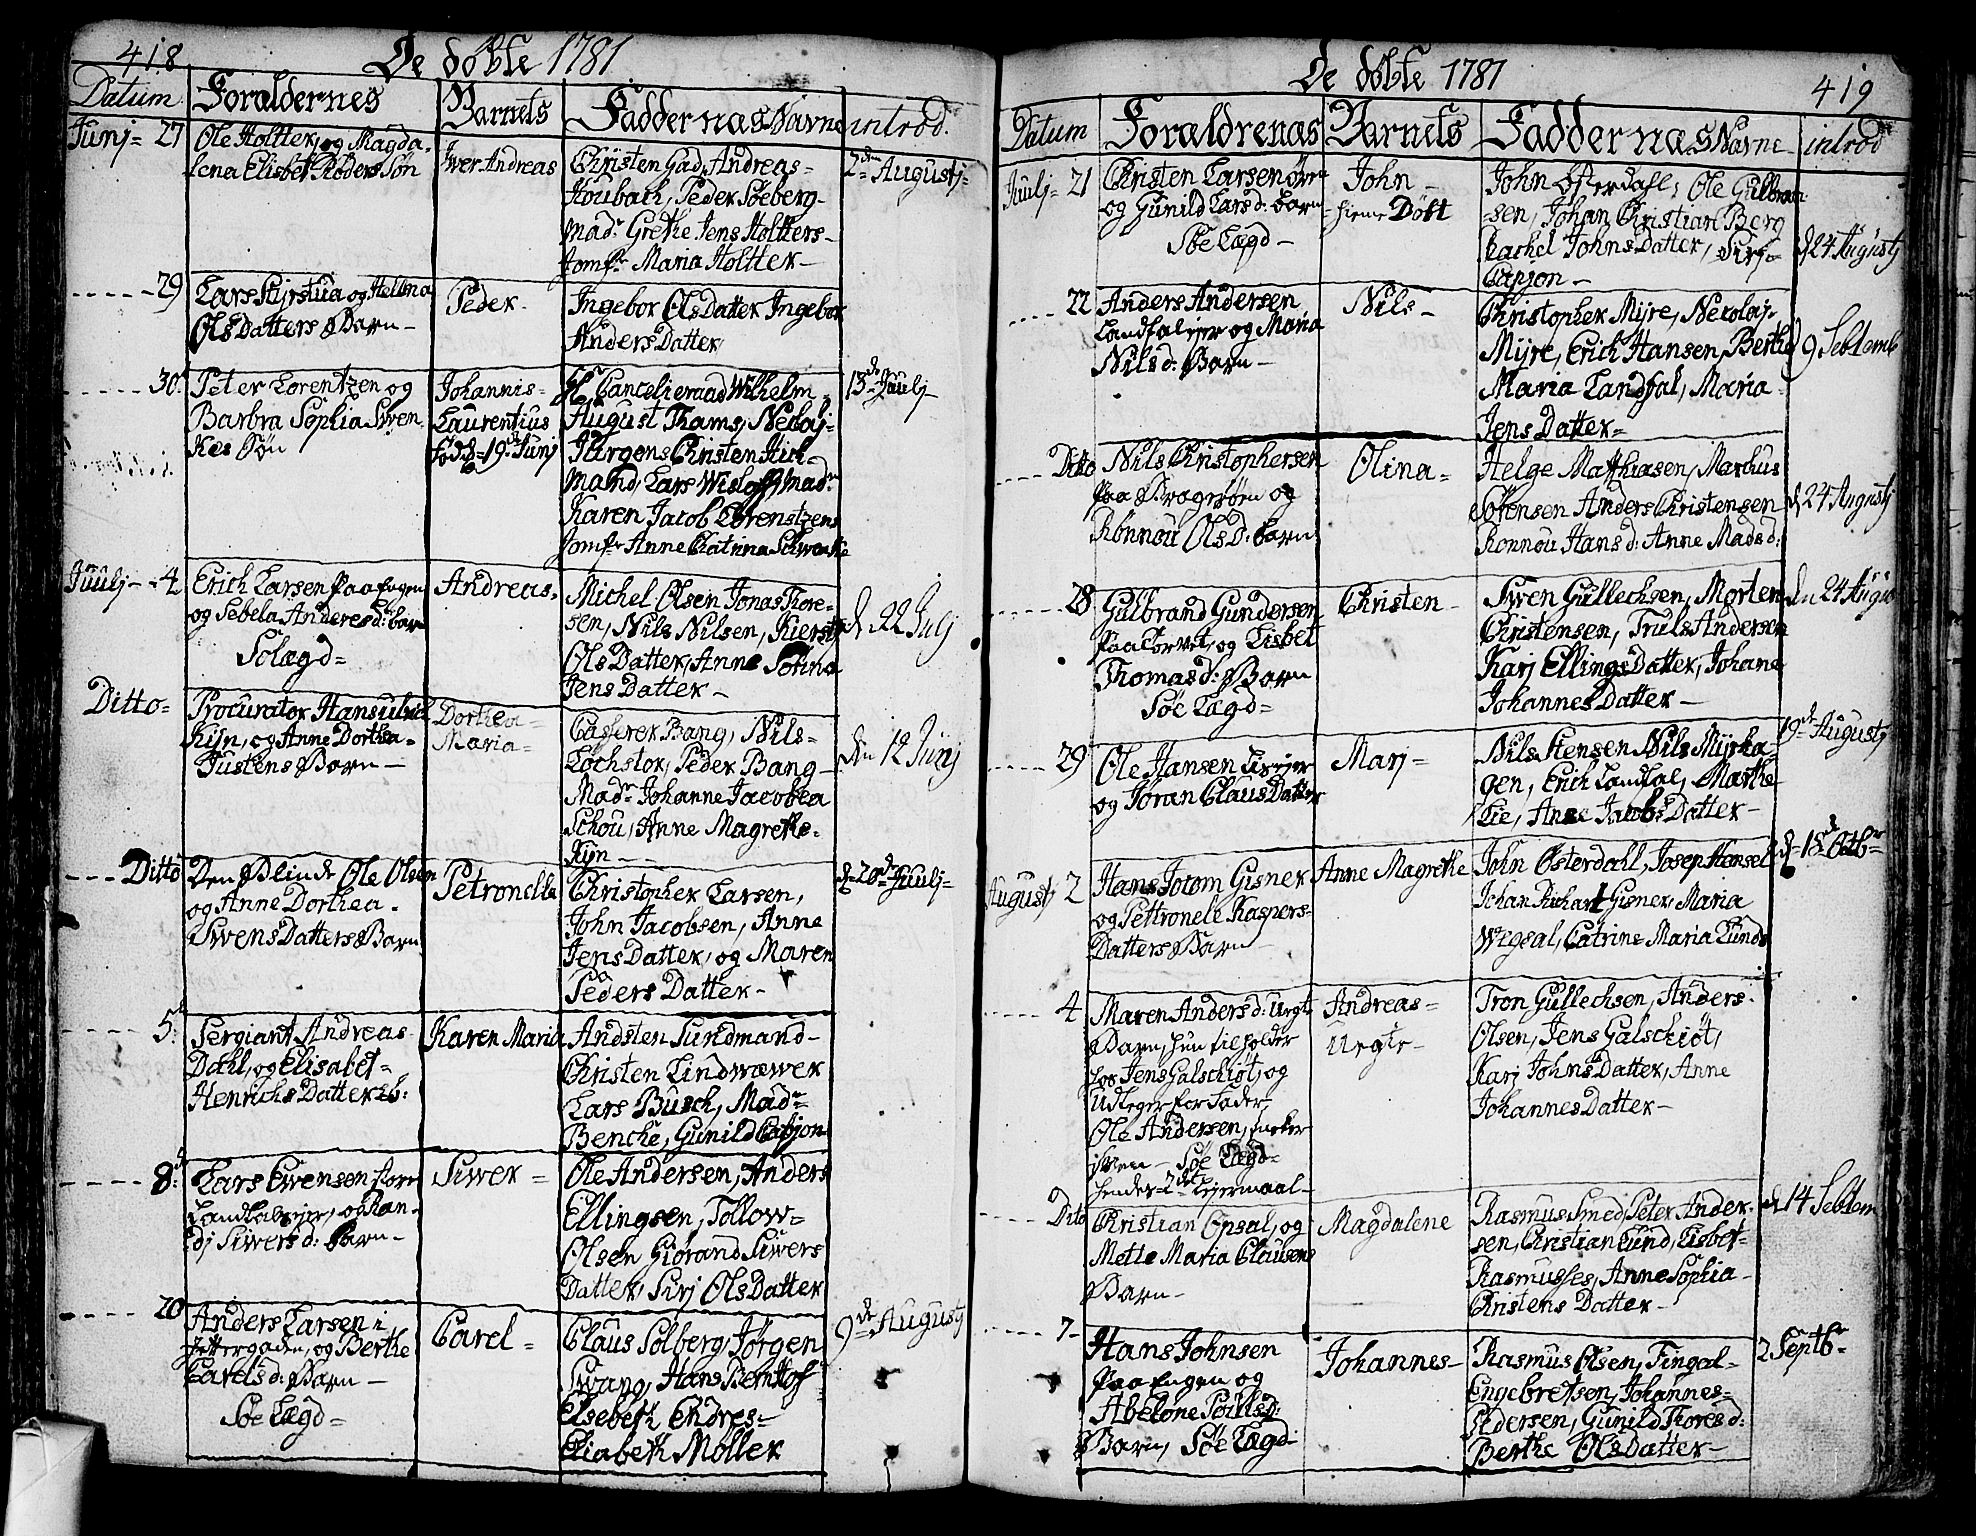 418
De döbte 1781
Datum
Foraldernes
Barnets
Faddernas Navne
introd.
Junj = 27
Ole Holtter, og Magda-
lena Elisbet Röders Sön
Iwer Andreas
Christen Gad, Andreas-
Houbach, Peder Söeberg-
Madr. Grethe Jens Holtters-
Jomfr. Maria Holtter-
2den Augustj-
29
Lars og Hellena
Ols Datters Barn-
Peder-
Ingebor Ols Datter Ingebor
Anders Datter
30
Peter Lorentzen og
Barbra Sophia Swen
kes Sön
Johannis-
Laurentius
föd d=19. Junj
Hr Cancelieraad Wilhelm-
August Thams, Nicolaj-
Jürgens Christen Hich-
mand, Lars Wisloff Madr
Karen Jacob Lorenstzens
Jomfr Anne Chatrina Schwenke
13de Juulj-
Juulj- 4
Erich Larsen paa Engen
og Sebela Anderesd: barn
Sölægd=
Andreas.
Michel Olsen Jonas Thore-
sen, Nils Nilsen, Kierstj
Ols Datter, Anne Sofina
Jens Datter-
d 22 Julj
Ditto-
Procurator Hans Ulrich
Kijn, og Anne Dorthea-
Justens Barn-
Dorthea-
Maria-
Casferer Bang, Nils-
Lochstor, Peder Bang-
Madr Johanne Jacobea
Schou, Anne Magrethe-
Kijn-
den 12 Junj
Ditto
Den Blinde Ole Olsen
og Anne Dorthea-
Swens Datters Barn
Petronella
Christopher Larsen,
John Jacobsen, Anne
Jens Datter, og Maren
Peders Datter-
d 20de Juulj-
5
Sergiant Andreas
Dahl, og Elisabet-
Henrichs Datter
Karen Maria
Andsten Sundmand-
Christen Lindwæwer
Lars Busch, Madr-
Benche, Gunild Capjon
8
Lars Ewensen
Landfalöjer, og Ran-
dj Siwers d: Barn-
Siwer-
Ole Andersen, Anders
Ellingsen, Tollow-
Olsen Giörand Siwers
Datter, Sirj Ols Datter
20
Anders Larsen i
Jettergaden, og Berthe
Carels d: Barn-
Söe Lægd=
Carel-
Claus Solberg Jörgen
Swang, Hans Bernhof
Elsebeth Endres-
Eliabeth Möller
9de Augustj
De döbte 1781
419
Datum
Foraldrenas
Barnets
Faddernas Navne
introd
Juulj= 21
Christen Larsen
og Gunild Larsd: barn
Söe Lægd-
John-
hieme Döbt
John Österdahl, Ole Gulbran-
sen, Johan Christian Berg
Rachel Johns Datter, Sirj-
Capjon-
d 24 Augustj
22
Anders Andersen
Landfalöjer og Maria
Nils d: Barn-
Nils-
Christopher Mijre, Nicolaj-
Mijre, Erich Hansen, Berthe
Maria Landfal, Maria-
Jens Datter-
9 Sebtemb
Ditto
Nils Christophersen
paa Bragerören og
Rönnou Ols D: barn
Olina-
Helge Matthiasen, Marchus
Sörensen Anders Christensen
Ronnou Hans d: Anne Mads d:
d 24 Augustj
28
Gulbrand Gundersen
paa Torvet, og Lisbet
Thomas d: Barn
Söe Lægd=
Christen-
Swen Gullechsen, Morten
Christensen, Truls Andersen
Karj Ellings Datter, Johane
Johannes Datter-
den 24 Augu
29
Ole Hansen
og Joran Claus Datter
Marj=
Nils Stensen Nils Mijrha
gen, Erich Landfal, Marthe
Lie, Anne Jacobs Datter-
19de Augustj
Augustj 2
Hans Jotom Gisner
og Pettronele Kaspers-
Datters Barn-
Anne Magrethe
John Österdahl, Josep Hansel
Johan Richart Gisner, Maria
Wegsal, Catrine Maria Lunds
d 18 Octbr
4
Maren Anders d: Uægt
Barn, hun tilholder
hos Jens Galschiöt, og
Udleger for Fader,
Ole Andersen,
Söe Lægd-
hendes 2det Lejermaal-
Andreas-
Uegte-
Tron Gullechsen, Anders-
Olsen, Jens Galschiöt,
Karj Johns Datter, Anne
Johannes Datter-
Dito
Christian Opsal, og
Mette Maria Clausens
Barn-
Magdalene
Rasmus Smed, Peter Ander-
sen, Christian Lund, Lisbet-
Rasmusses, Anne Sophia-
Christens Datter-
d 14 Sebtem
7-
Hans Johnsen
paa Engen og
Abelone Poulsd:
Barn, Söe Lægd
Johannes-
Rasmus Olsen, Fingal-
Engebretsen, Johannes-
Pedersen, Gunild Thores d:
Berthe Ols Datter-
2 Septbr